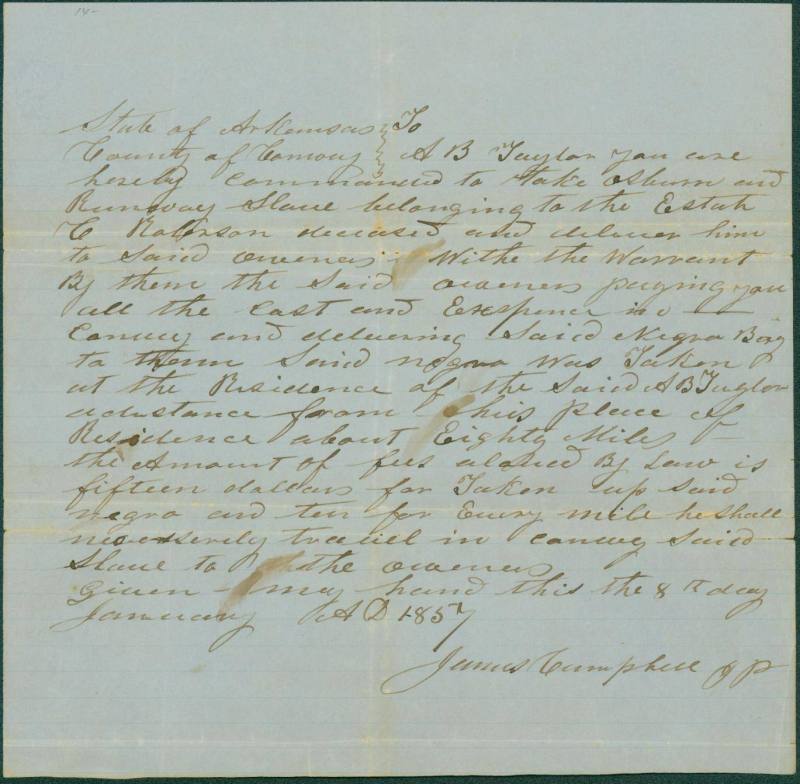 14-
State of Arkansas } To
County of Conway } A B Taylor you are
hereby commanded to take Osburn and
Runway Slave belonging to the Estate
C Roberson deceased and deliver him
to Said owners Withe the Warrant
By them the Said owners paying you
all the cost and Exspence in —
Convey and delivering Said Negro Boy
to them Said negro Was Taken
at the Residence of the Said A B Taylor
adistance from his place of
Residence about Eighty Miles —
the Amount of fees alowed By Law is
fifteen dollars for Taken up said
negro and ten for Every mile he shall
necerserely travel in convey Said
Slave to the owners
given my hand this the 8th day
January A D 1857
James Campbell J P